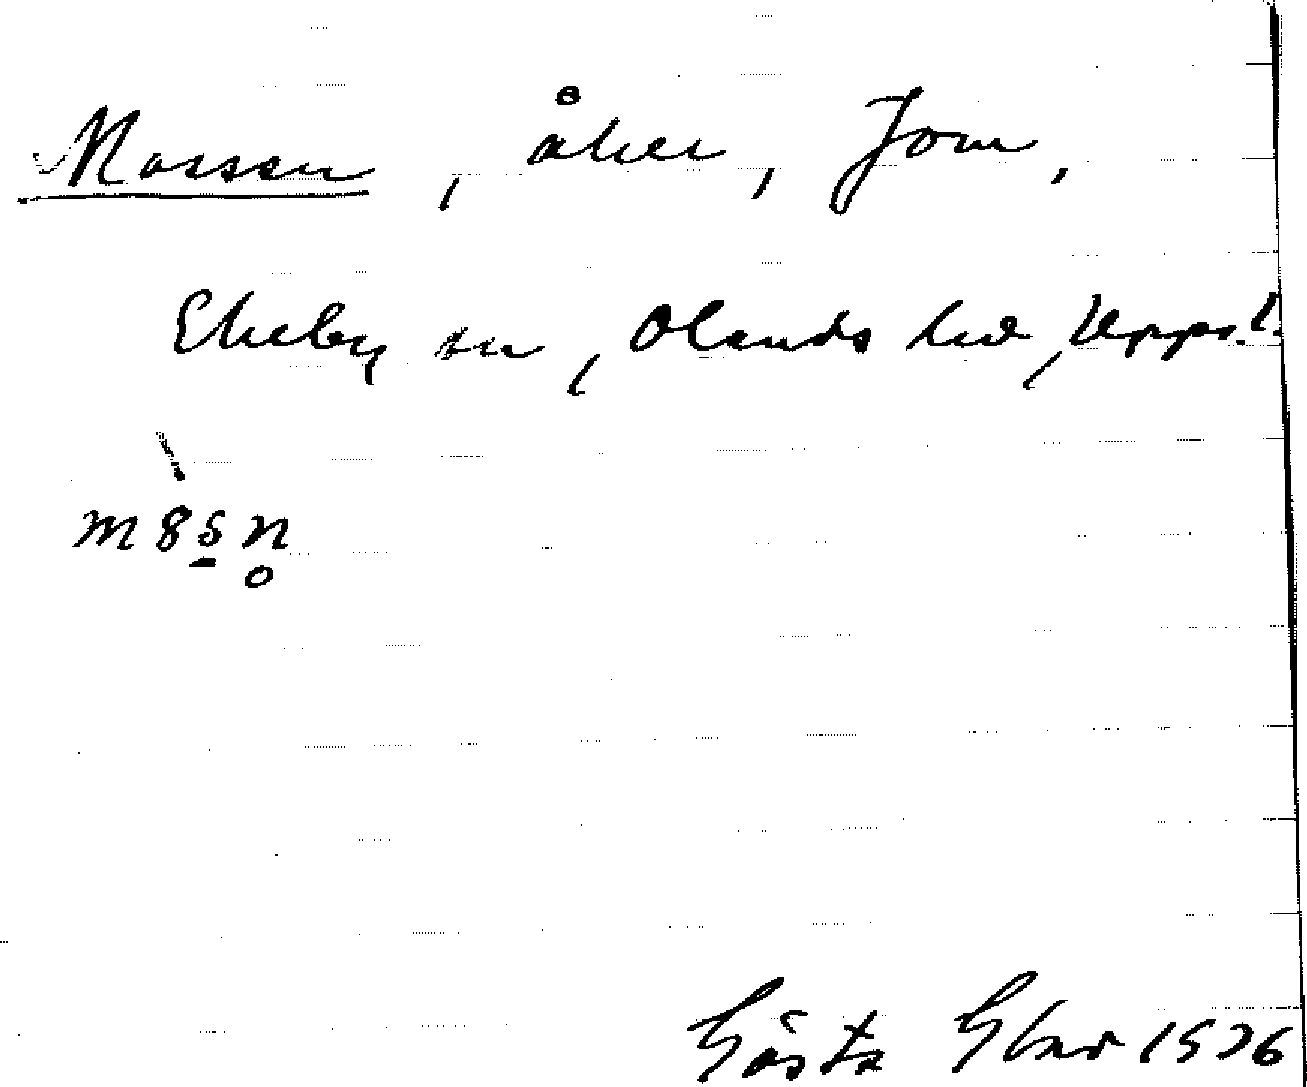 Mossen, åker, Jom,
Ekeby sn, Olands hd, Upps. l.
m8sn
Gösta